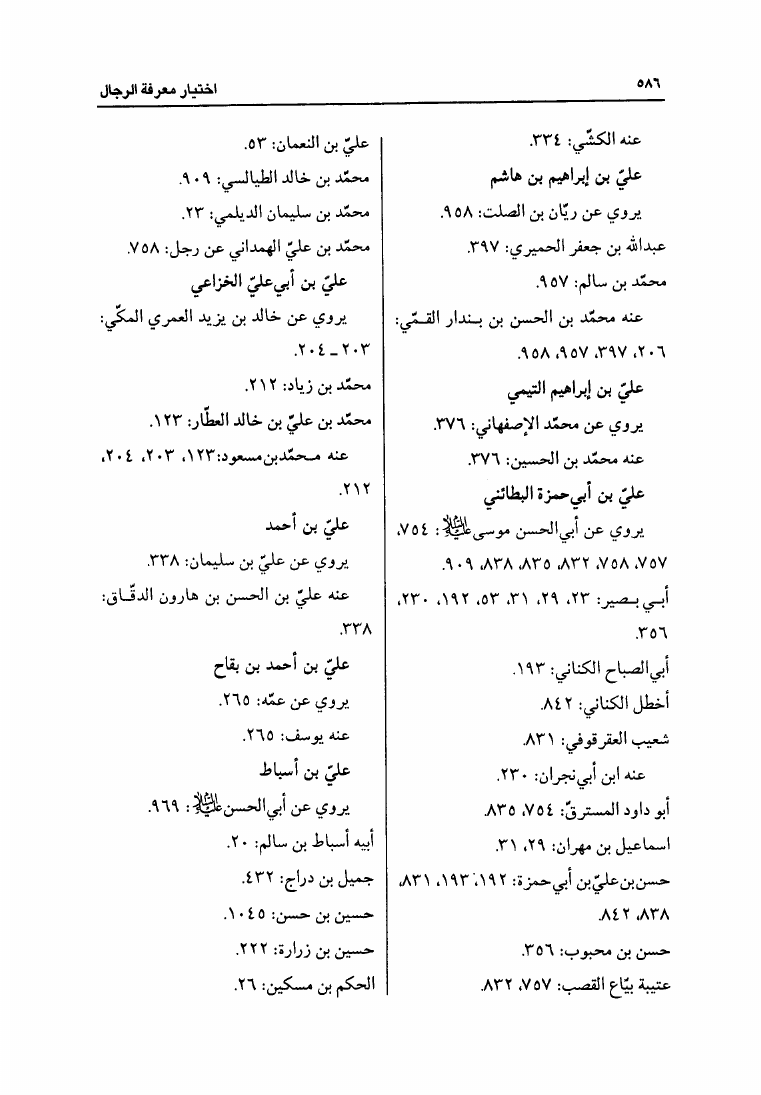 ٥٨٦
اختيار معرفة الرجال
عنه الكشّي: ٣٣٤.
عليّ بن إبراهيم بن هاشم
يروي عن ريّان بن الصلت: ٩٥٨.
عبدالله بن جعفر الحميري: ٣٩٧.
محمّد بن سالم: ٩٥٧.
عنه محمّد بن الحسن بن بـندار القـمّي:
٢٠٦، ٣٩٧، ٩٥٧، ٩٥٨.
عليّ بن إبراهيم التيمي
يروي عن محمّد الإصفهاني: ٣٧٦.
عنه محمّد بن الحسين: ٣٧٦.
عليّ بن أبي‌حمزة البطائني
يروي عن أبي‌الحسن موسى عليه السلام: ٧٥٤،
٧٥٧، ٧٥٨، ٨٣٢، ٨٣٥، ٨٣٨، ٩٠٩.
أبـي بـصير: ٢٣، ٢٩، ٣١، ٥٣، ١٩٢، ٢٣٠،
٣٥٦.
أبي‌الصباح الكناني: ١٩٣.
أخطل الكناني: ٨٤٢.
شعيب العقرقوفي: ٨٣١.
عنه ابن أبي‌نجران: ٢٣٠.
أبو داود المسترقّ: ٧٥٤، ٨٣٥.
اسماعيل بن مهران: ٢٩، ٣١.
حسن‌بن‌عليّ‌بن أبي‌حمزة: ١٩٢، ١٩٣، ٨٣١،
٨٣٨، ٨٤٢.
حسن بن محبوب: ٣٥٦.
عتيبة بيّاع القصب: ٧٥٧، ٨٣٢.
عليّ بن النعمان: ٥٣.
محمّد بن خالد الطيالسي: ٩٠٩.
محمّد بن سليمان الديلمي: ٢٣.
محمّد بن عليّ الهمداني عن رجل: ٧٥٨.
عليّ بن أبي‌عليّ الخزاعي
يروي عن خالد بن يزيد العمري المكّي:
٢٠٣ ـ ٢٠٤.
محمّد بن زياد: ٢١٢.
محمّد بن عليّ بن خالد العطّار: ١٢٣.
عنه مـحمّدبن‌مسعود:١٢٣، ٢٠٣، ٢٠٤،
٢١٢.
عليّ بن أحمد
يروي عن عليّ بن سليمان: ٣٣٨.
عنه عليّ بن الحسن بن هارون الدقّـاق:
٣٣٨.
عليّ بن أحمد بن بقاح
يروي عن عمّه: ٢٦٥.
عنه يوسف: ٢٦٥.
عليّ بن أسباط
يروي عن أبي‌الحسن عليه السلام: ٩٦٩.
أبيه أسباط بن سالم: ٢٠.
جميل بن دراج: ٤٣٢.
حسين بن حسن: ١٠٤٥.
حسين بن زرارة: ٢٢٢.
الحكم بن مسكين: ٢٦.